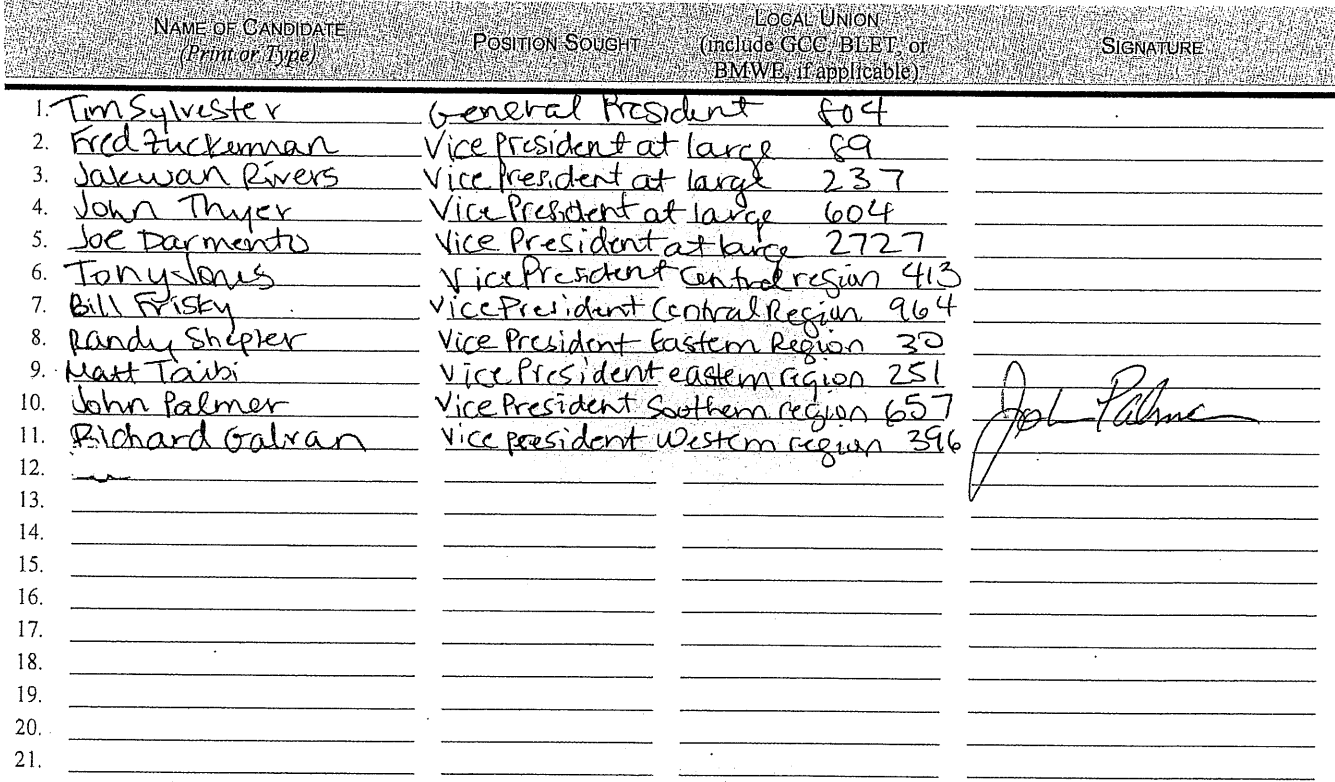 NAME OF CANDIDATE (Print or Type) POSITION SOUGHT LOCAL UNION (include GCC, BLET, or BMWE, if applicable) SIGNATURE
1. Tim Sylvester General President 804
2. Fred Zuckerman Vice President at large 89
3. Jakwan Rivers Vice President at large 237
4. John Thyer Vice President at large 604
5. Joe Darmento Vice President at large 2727
6. Tony Jones Vice President Central region 413
7. Bill Frisky Vice President Central Region 964
8. Randy Shepler Vice President Eastern Region 30
9. Matt Taibi Vice President eastern region 251
10. John Palmer Vice President Southern region 657 John Palmer
11. Richard Galvan Vice president Western region 396
12.
13.
14.
15.
16.
17.
18.
19.
20.
21.